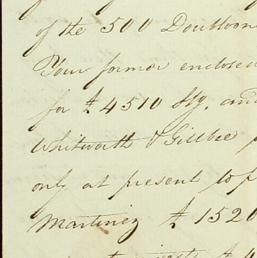 of the 500 Doubloon
Your former enclosed
for £4510 Stg, and
Whitworth & Gillbee
only at present to
Martinez £1520